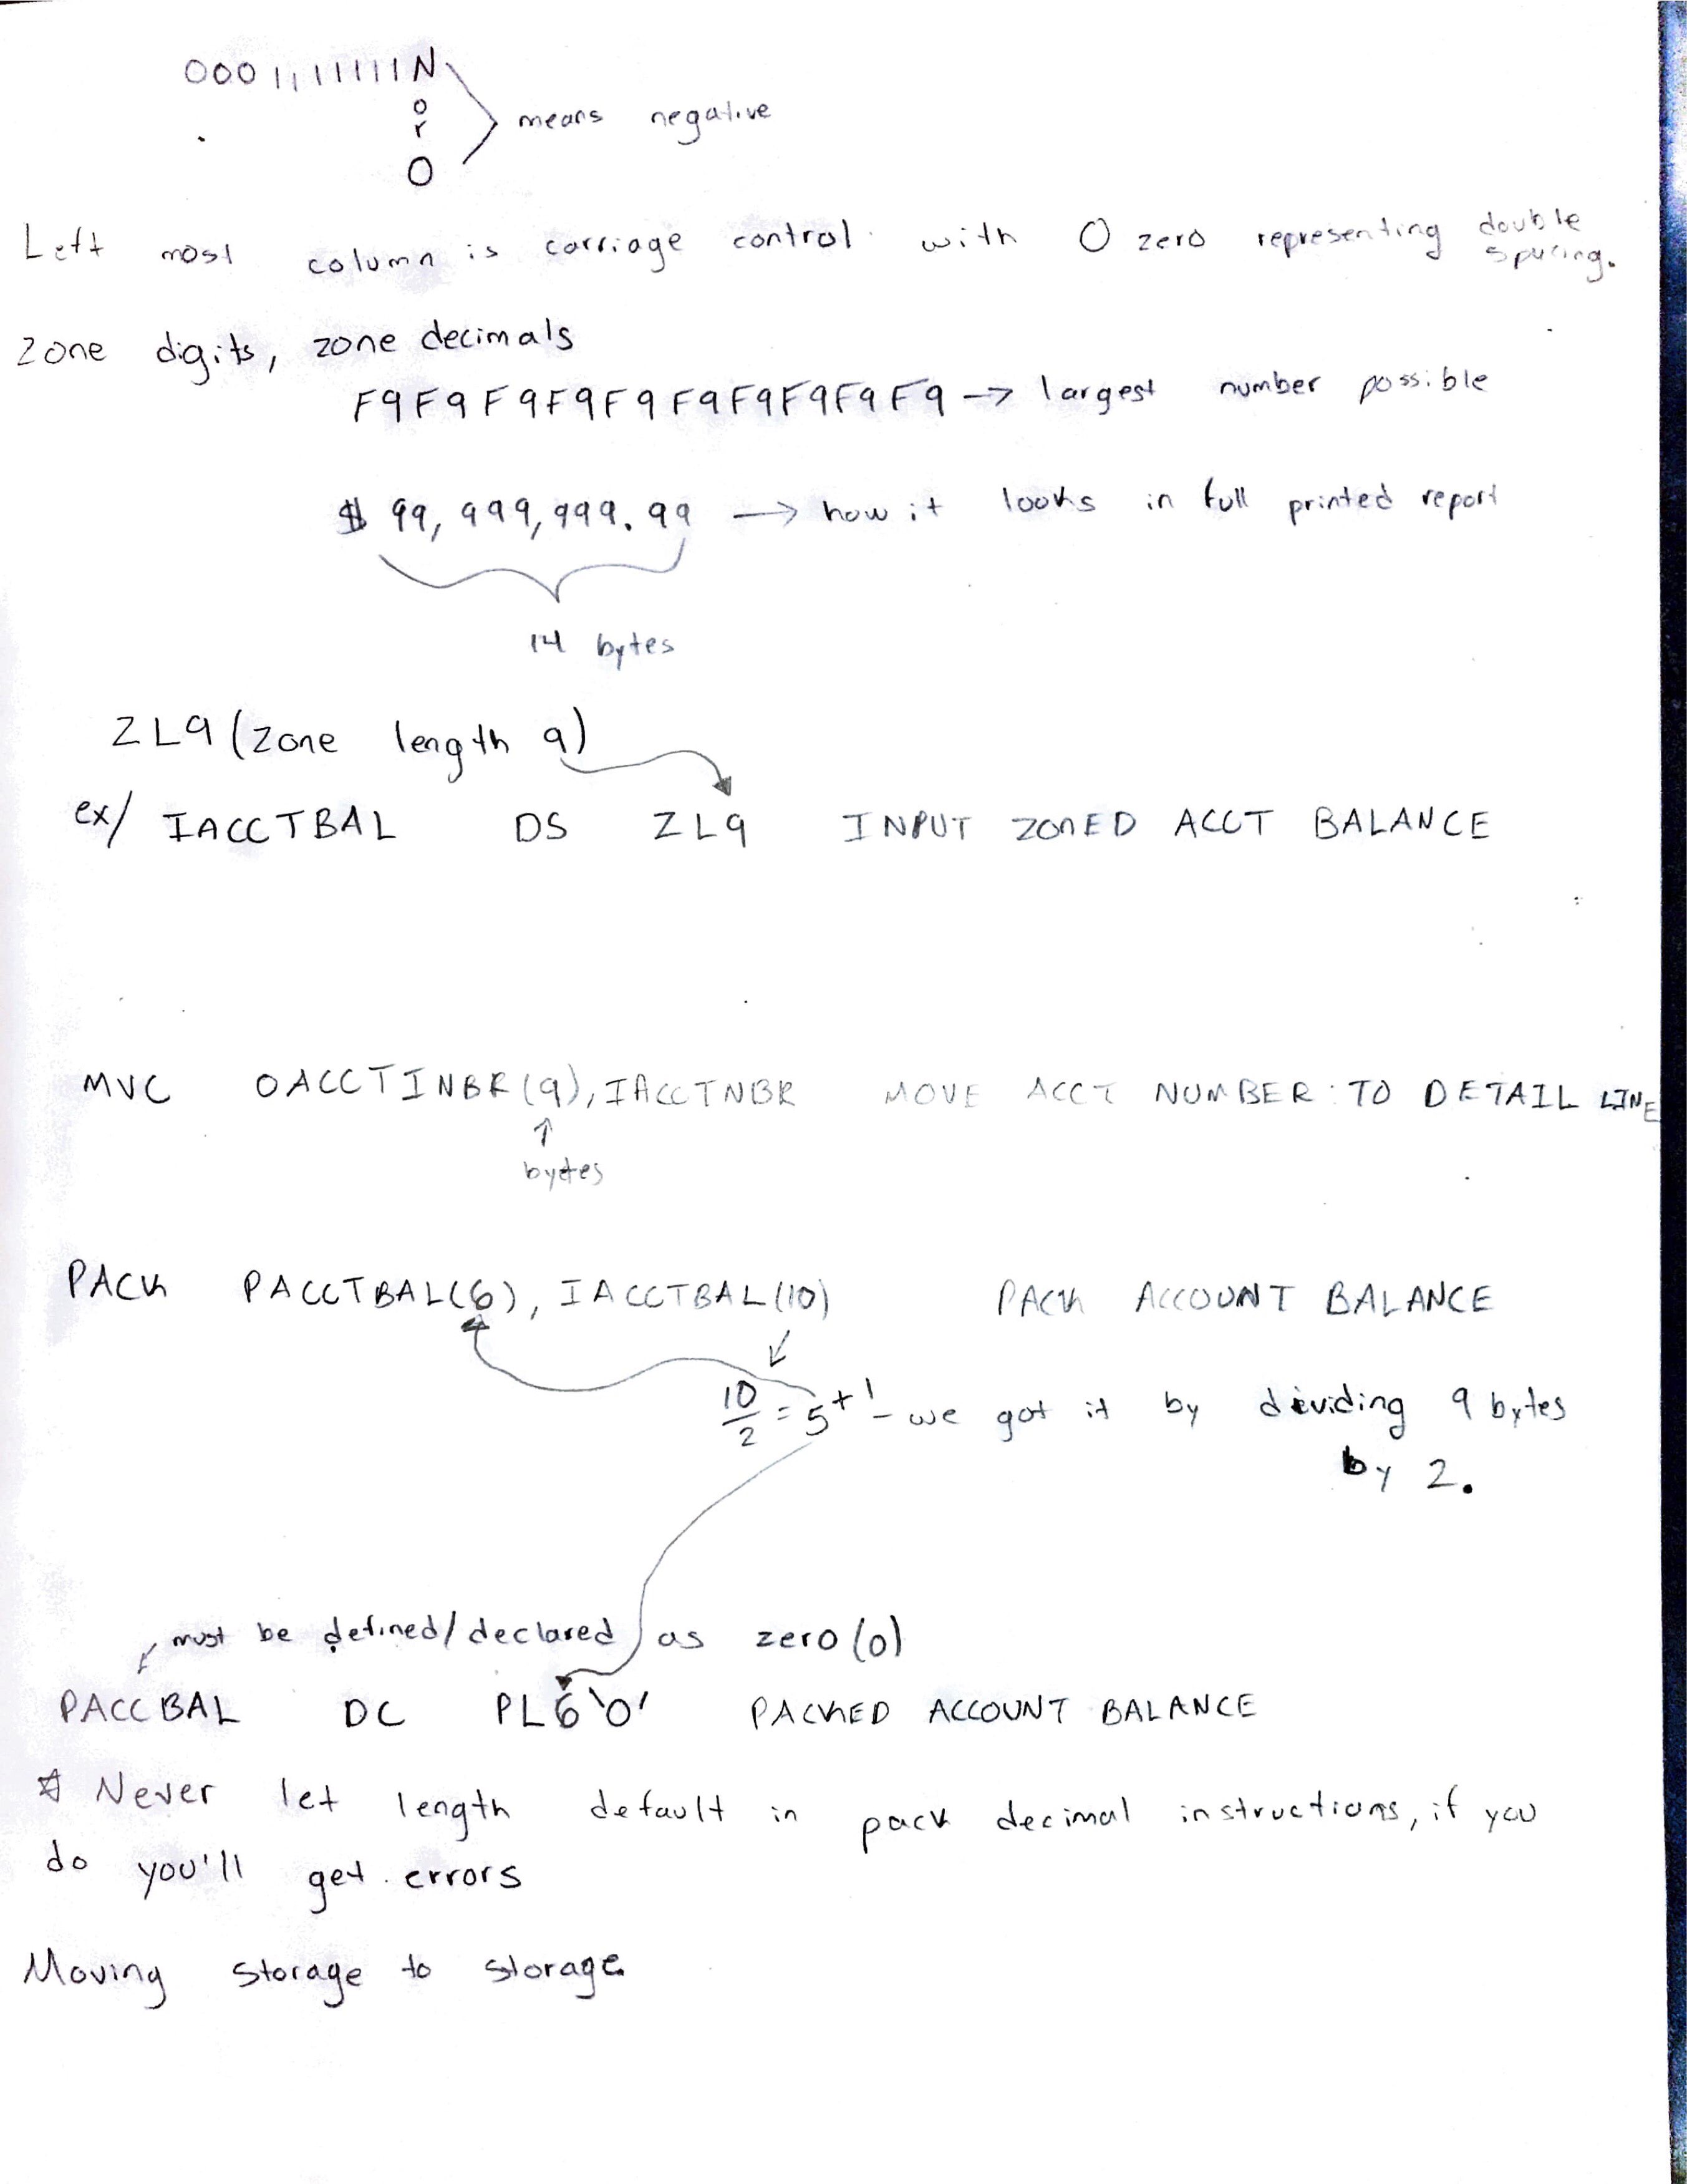 0001,11111N
or
O
means negative
Left most column is carriage control with 0 zero representing double spacing.
Zone digits, zone decimals
F9F9F9F9F9F9F9F9F9F9 → largest number possible
$ 99,999,999.99 → how it looks in full printed report
14 bytes
ZL9 (zone length 9)
ex/ IACCTBAL DS ZL9 INPUT ZONED ACCT BALANCE
MVC OACCTINBR(9), IACCTNBR MOVE ACCT NUMBER TO DETAIL LINE
↑
bytes
PACK PACCTBAL(6), IACCTBAL(10) PACK ACCOUNT BALANCE
10/2 = 5+1 - we got it by dividing 9 bytes
by 2.
must be defined/declared as zero (0)
PACCBAL DC PL6'0' PACKED ACCOUNT BALANCE
* Never let length default in pack decimal instructions, if you
do you'll get errors
Moving storage to storage